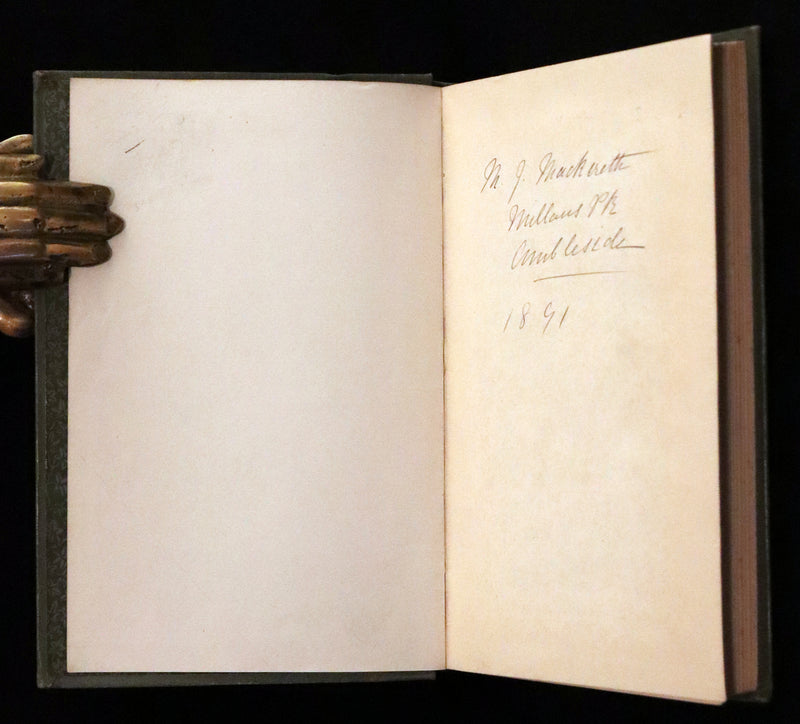 M. J. Mackereth
Millans Pk
Ambleside
1891